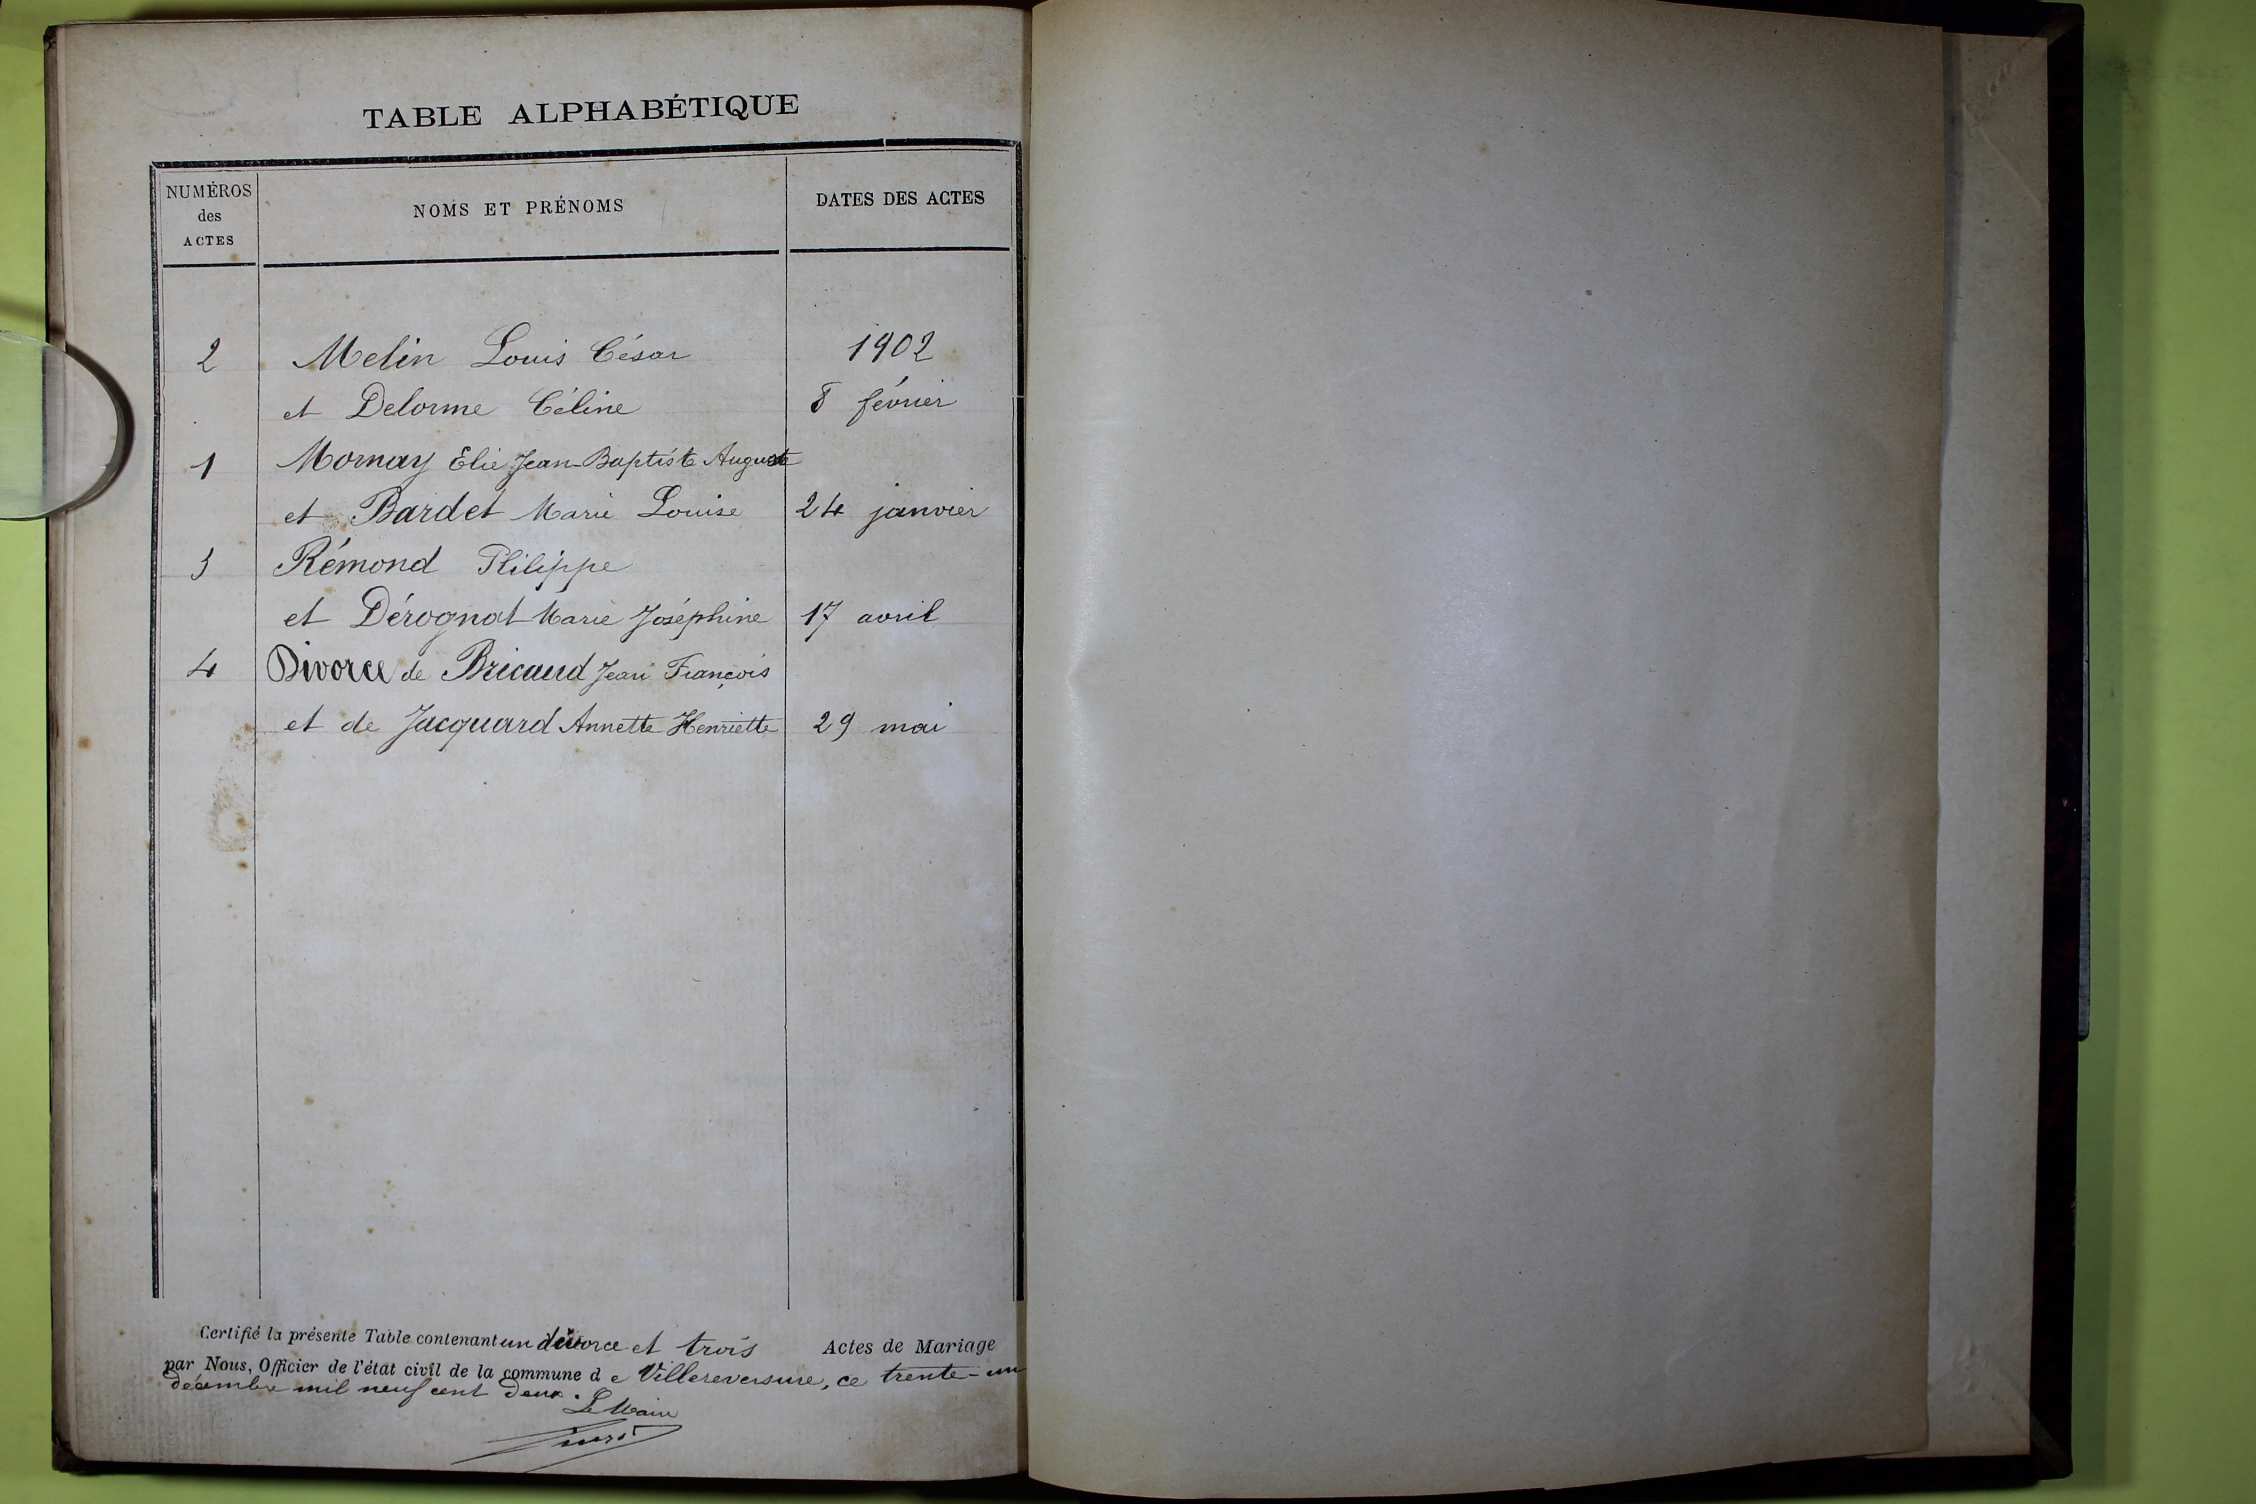 TABLE ALPHABÉTIQUE
NUMÉROS des ACTES NOMS ET PRÉNOMS DATES DES ACTES
2 Melin Louis César 1902
et Delorme Céline 8 février
1 Mornay Elie Jean-Baptiste Auguste
et Bardet Marie Louise 24 janvier
3 Rémond Philippe
et Dérognat Marie Joséphine 17 avril
4 Divorce de Bricaud Jean François
et de Jacquard Annette Henriette 29 mai
Certifié la présente Table contenant un divorce et trois Actes de Mariage
par Nous, Officier de l'état civil de la commune d e Villereversure, ce trente-un
décembre mil neuf cent deux.
Le Maire